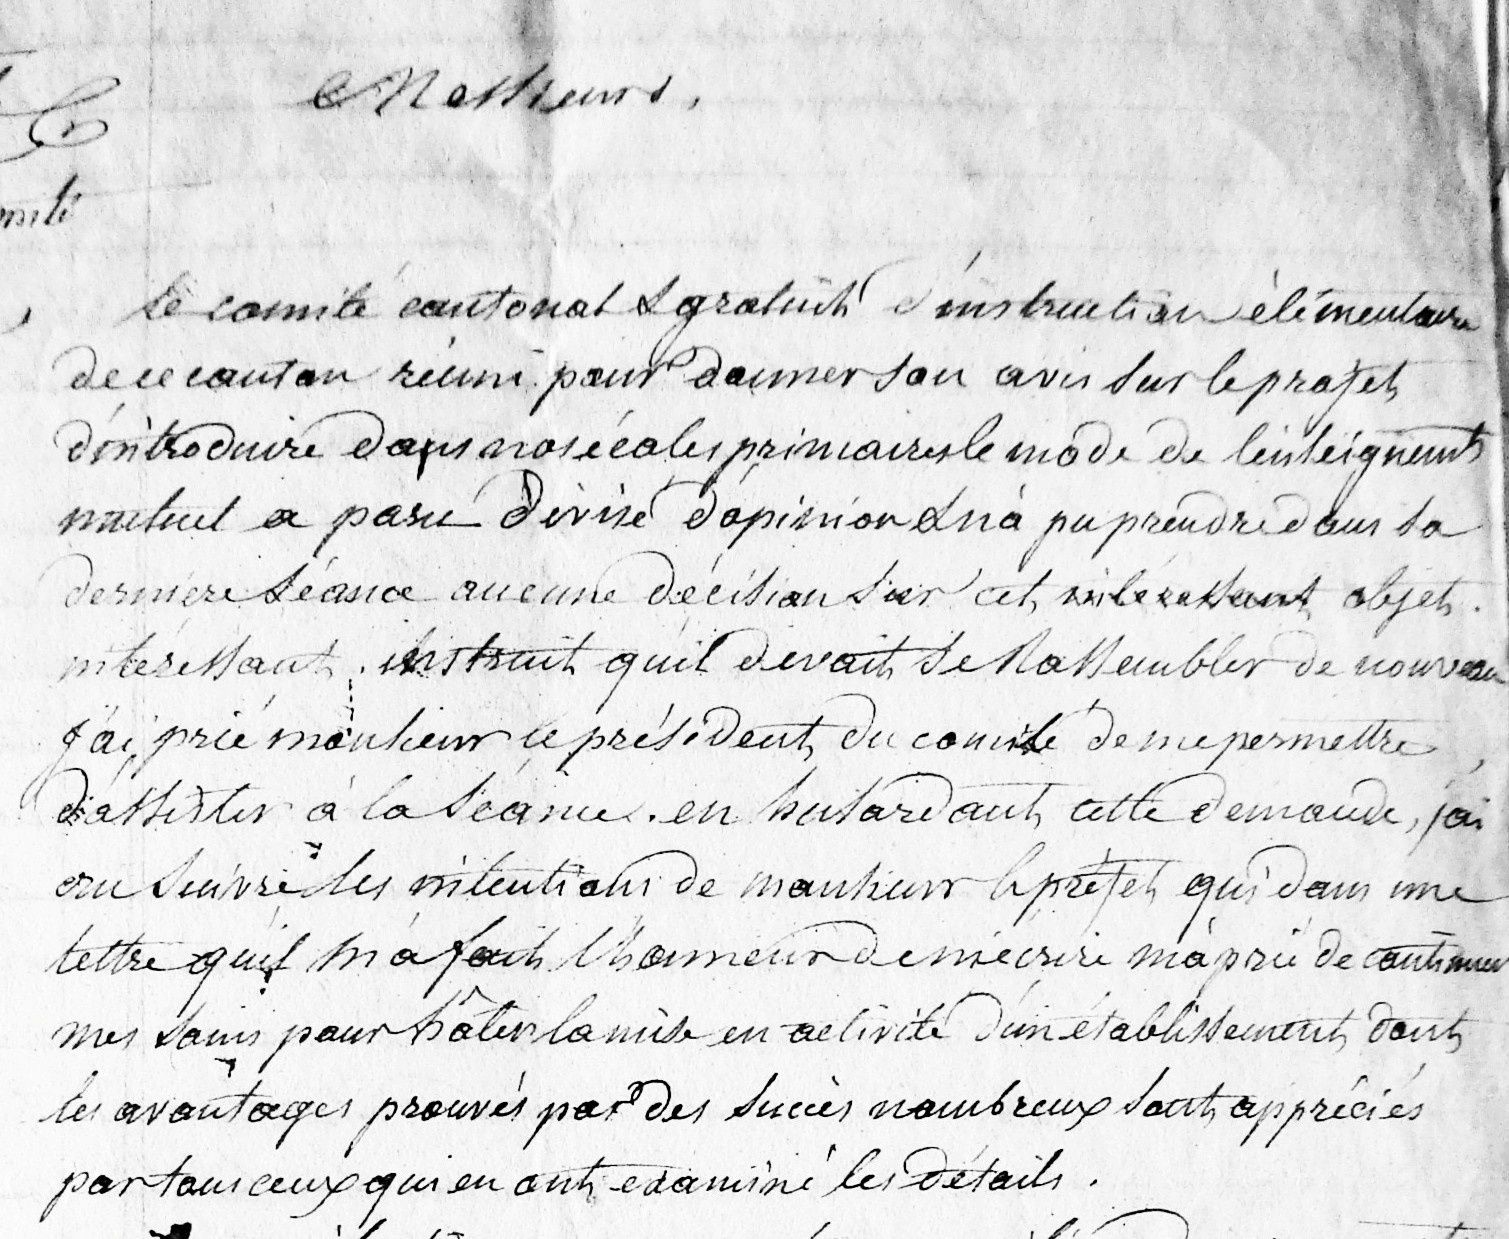 Messieurs,
mité
Le comité cantonal & gratuit d'instruction élémentaire
de ce canton réuni pour donner son avis sur le projet
d'introduire dans nos écoles primaires le mode de l'enseignemt
mutuel a paru divisé d'opinion & n'a pu prendre dans sa
dernière séance aucune décision sur cet intéressant objet.
intéressant. instruit qu'il devait se rassembler de nouveau
j'ai prié monsieur le président du comité de me permettre
d'assister à la séance. en hasardant cette demande, j'ai
cru suivre les intentions de monsieur le préfet qui dans une
lettre qu'il m'a fait l'honneur de m'écrire m'a prié de continuer
mes soins pour hâter la mise en activité d'un établissement dont
les avantages prouvés par des succès nombreux sont appréciés
par tous ceux qui en ont examiné les détails.